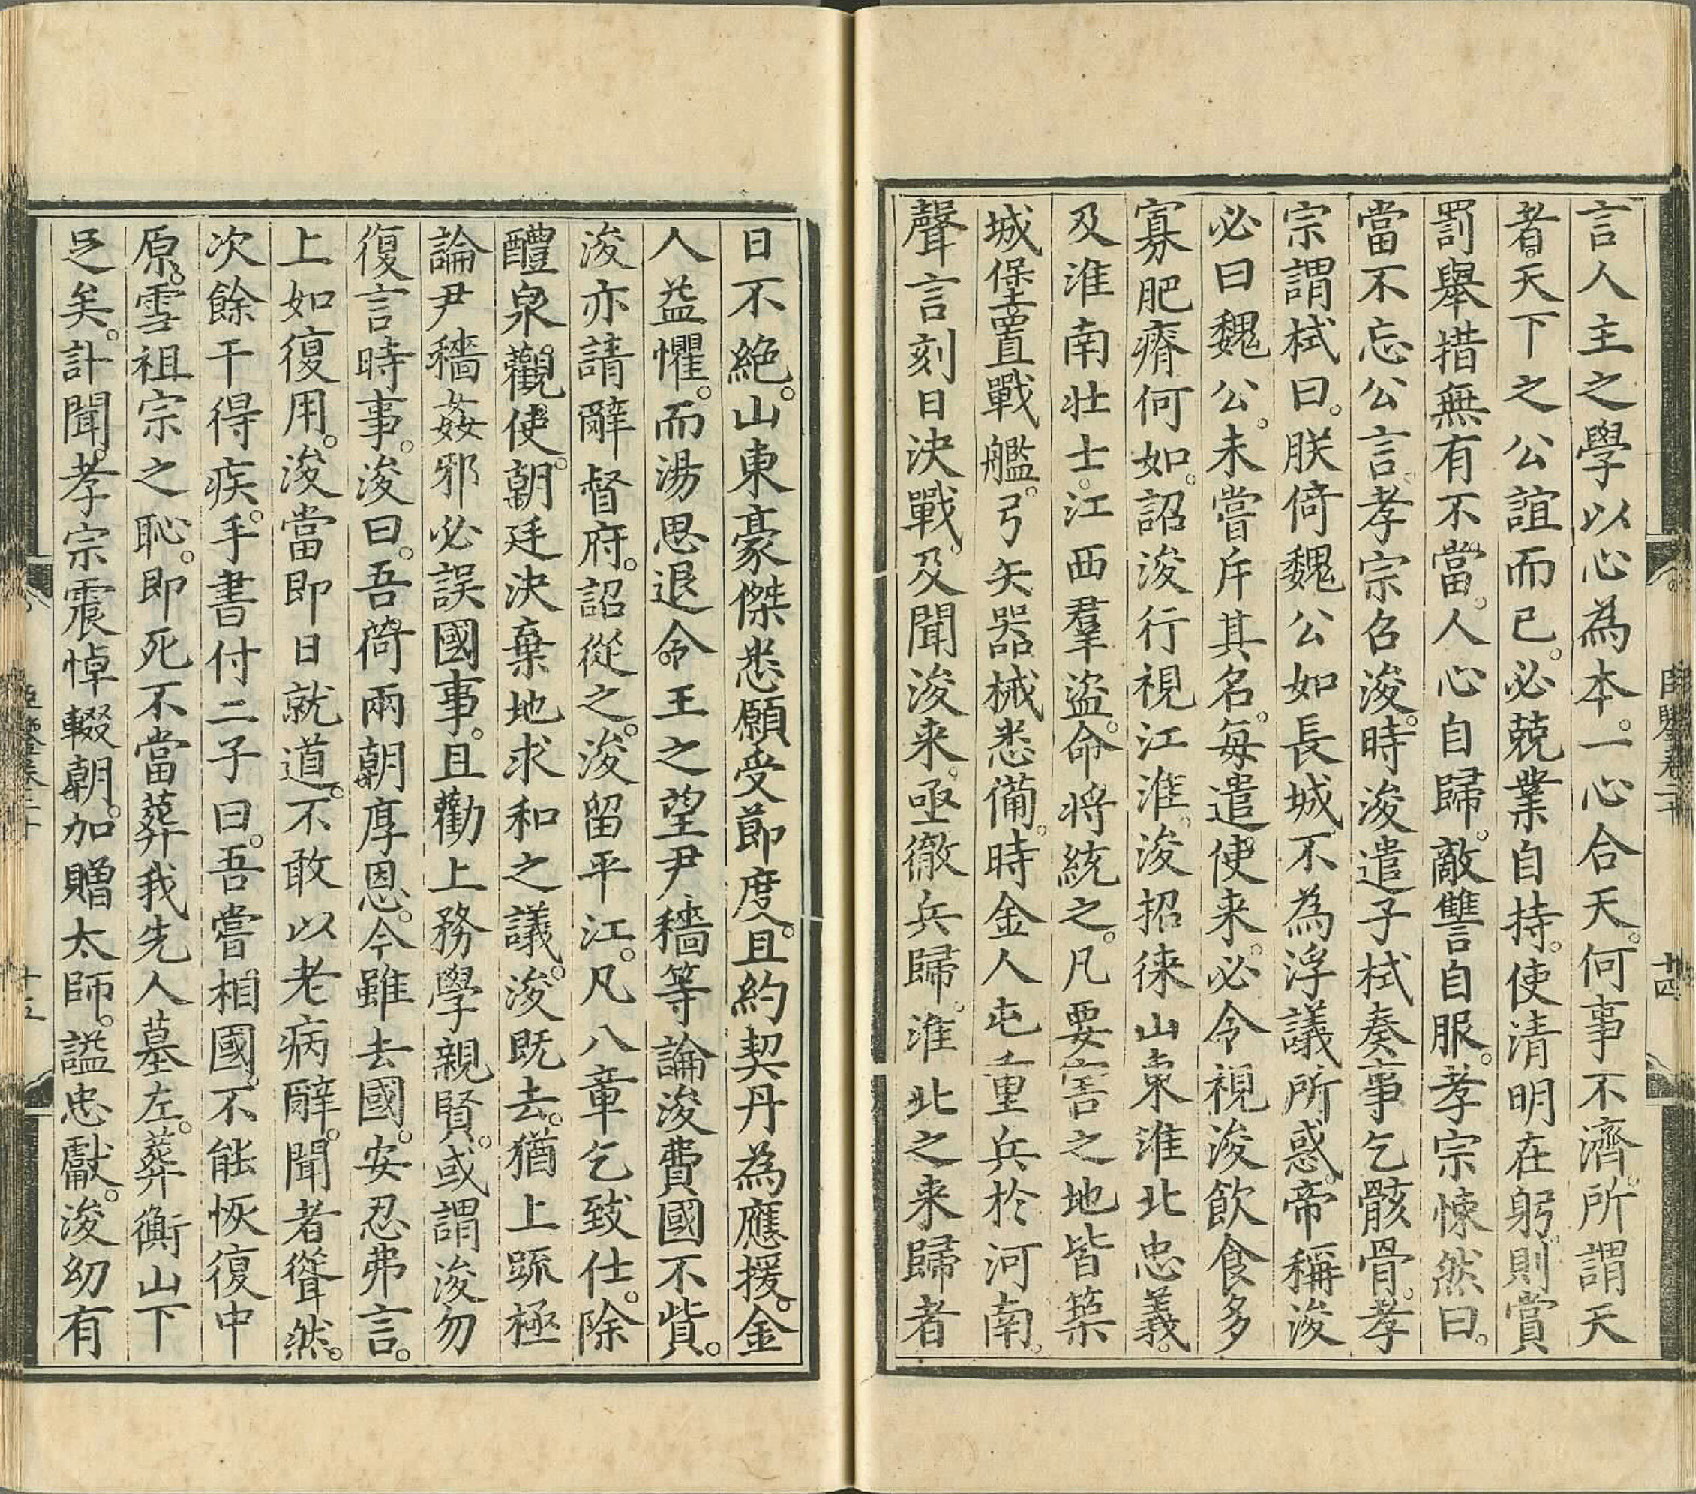 言人主之學以心為本。一心合天。何事不濟。所謂天
者。天下之公誼而已。必兢業自持。使清明在躬。則賞
罰舉措無有不當。人心自歸。敵讐自服。孝宗悚然曰。
當不忘公言。孝宗召浚。時浚遣子栻奏事乞骸骨。孝
宗謂栻曰。朕倚魏公如長城。不為浮議所惑。帝稱浚
必曰魏公。未嘗斥其名。每遣使来。必令視浚飲食多
寡肥瘠何如。詔浚行視江淮。浚招徠山東淮北忠義。
及淮南壮士。江西羣盜。命将統之。凡要害之地皆築
城堡。置戰艦。弓矢器械悉備。時金人屯重兵於河南。
聲言刻日決戰。及聞浚来。亟徹兵歸。淮北之来歸者
日不絶。山東豪傑悉願受節度。且約契丹為應援。金
人益懼。而湯思退令王之望尹穡等論浚費國不貲。
浚亦請辭督府。詔從之。浚留平江。凡八章乞致仕。除
醴泉觀使。朝廷決棄地求和之議。浚既去。猶上䟽極
論尹穡姦邪必誤國事。且勸上務學親賢。或謂浚勿
復言時事。浚曰。吾荷兩朝厚恩。今雖去國。安忍弗言。
上如復用。浚當即日就道。不敢以老病辭。聞者聳然。
次餘干得疾。手書付二子曰。吾嘗相國。不能恢復中
原。雪祖宗之恥。即死不當葬我先人墓左。葬衡山下
足矣。訃聞。孝宗震悼輟朝。加贈太師。謚忠獻。浚幼有